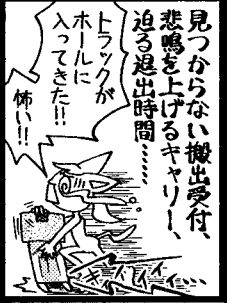 見つからない搬出受付、
悲鳴を上げるキャリー、
迫る退出時間……
トラックが
ホールに
入ってきた!!
怖い!!
キィィィィィ…